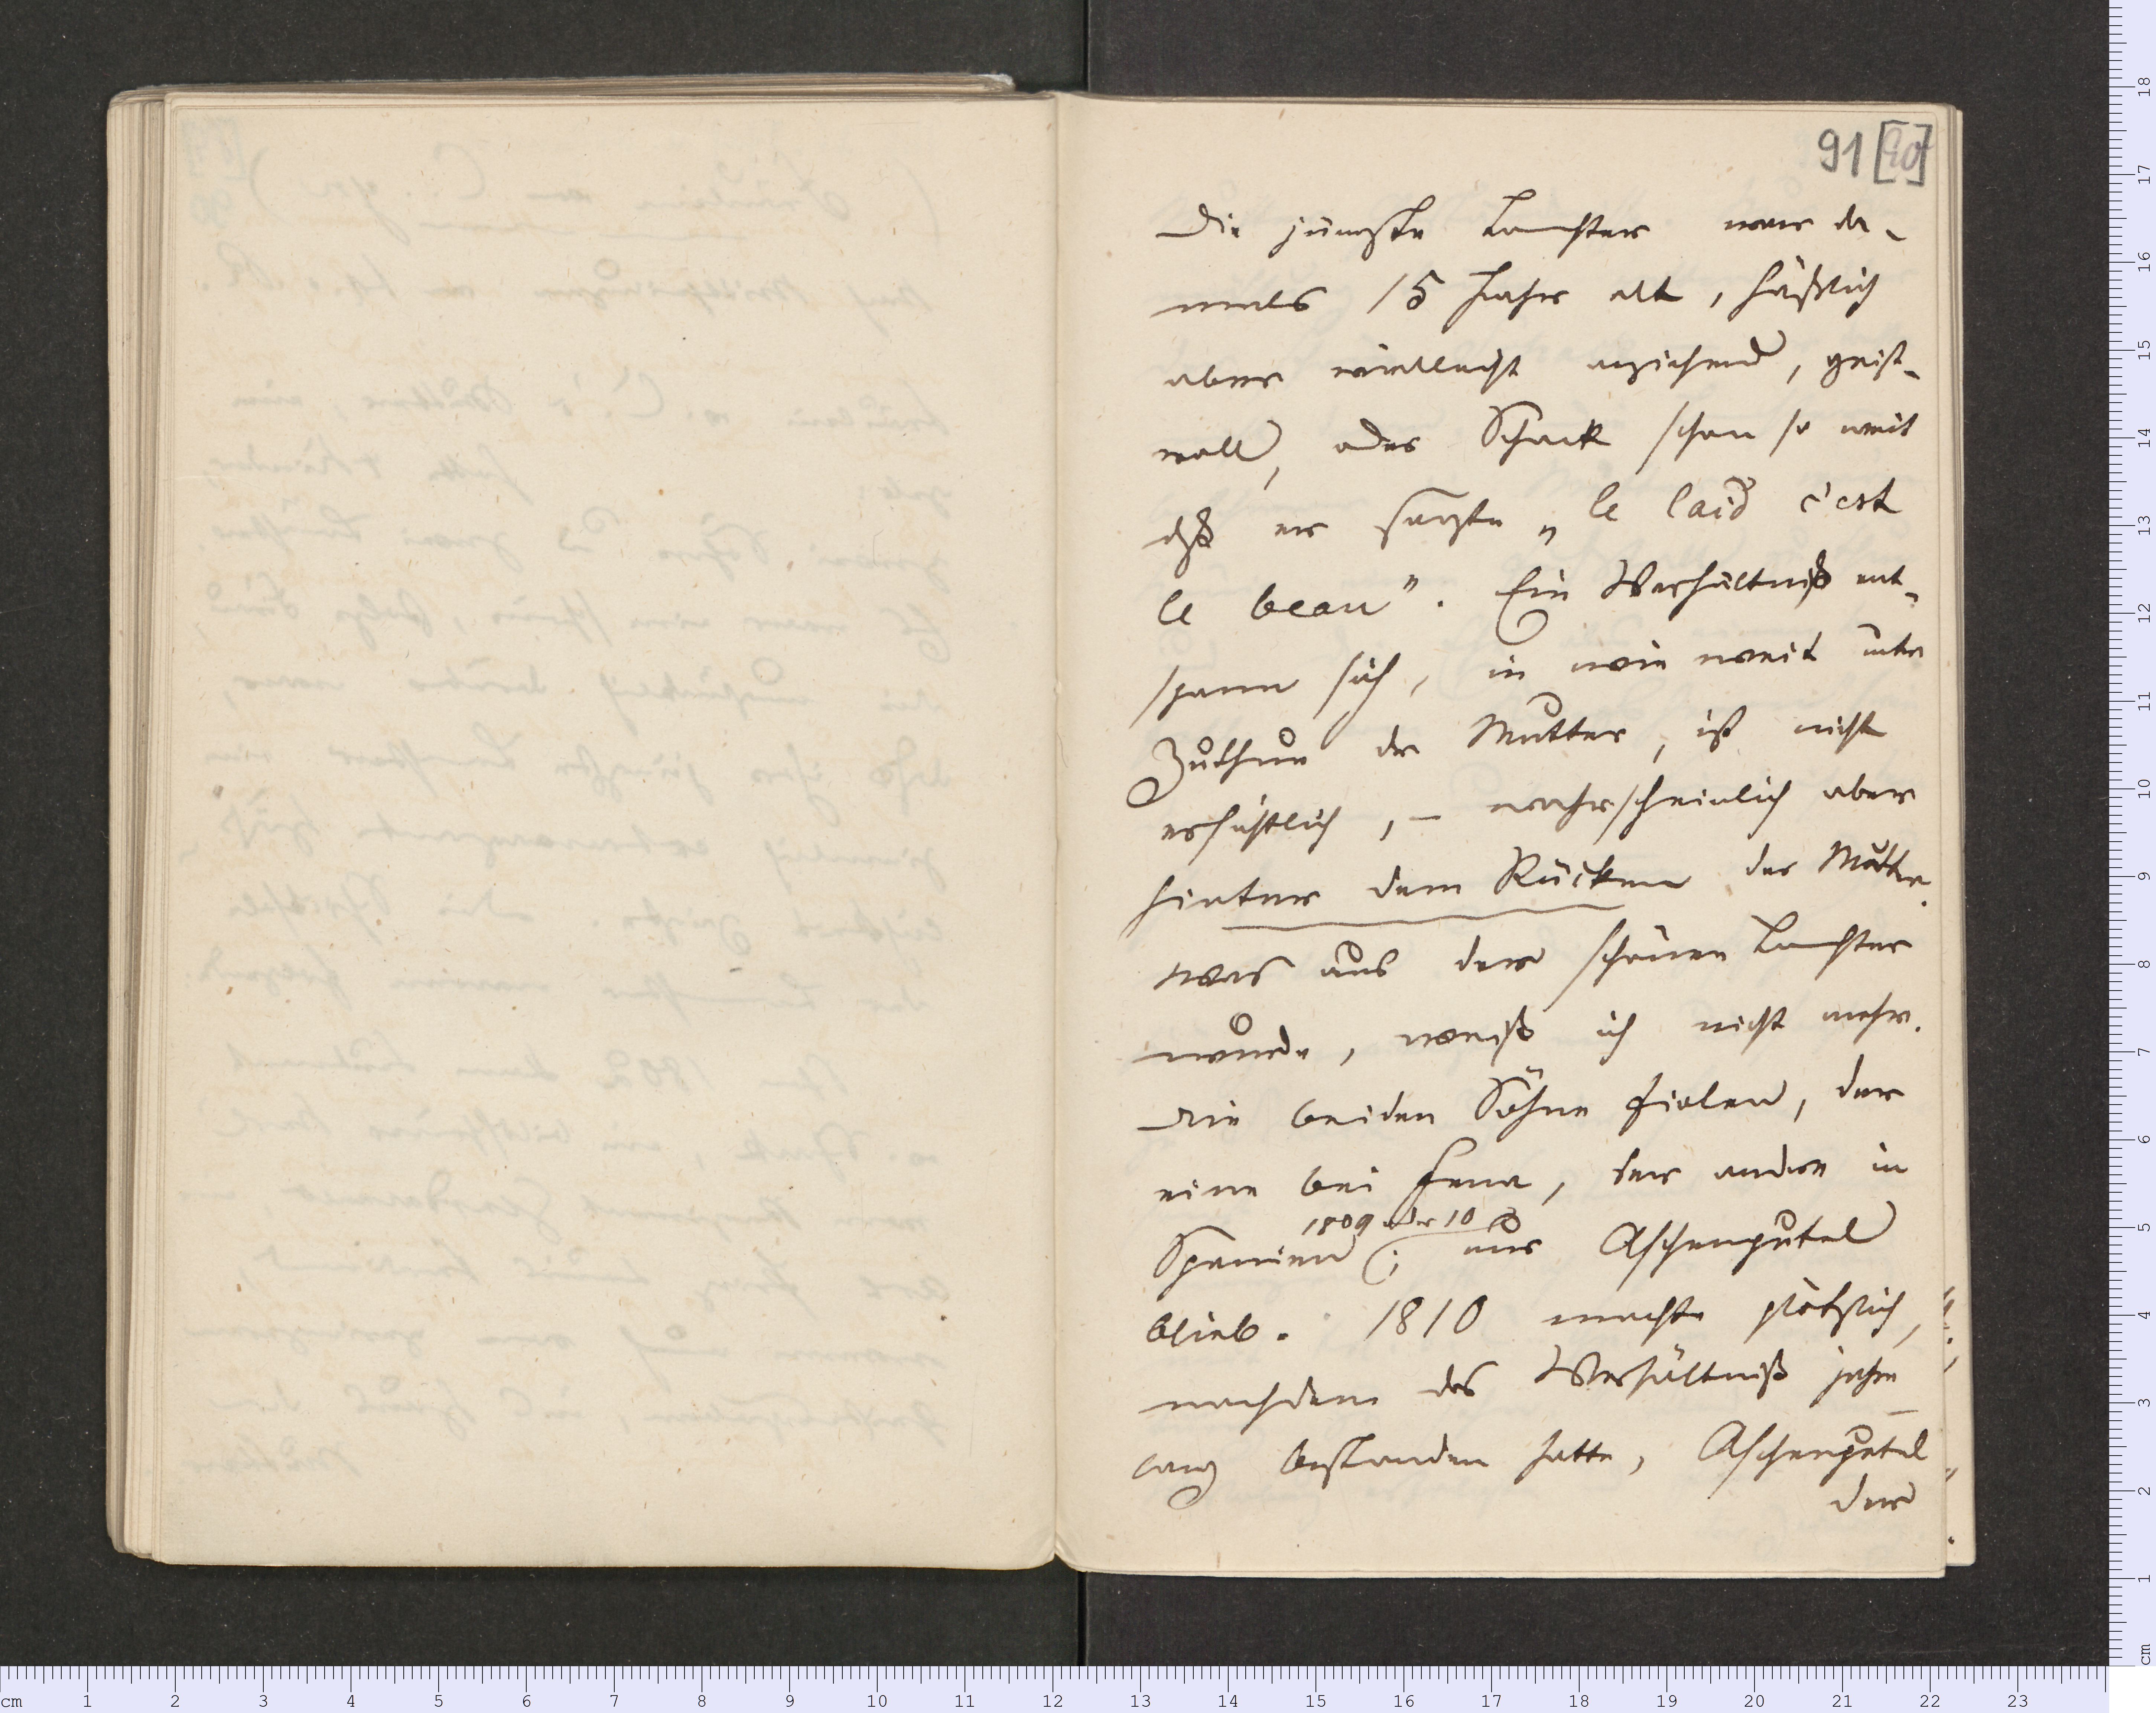 91 [90]
Die jüngste Tochter war da-
mals 15 Jahr alt, häßlich
aber vielleicht anziehend, geist-
voll, oder Schack schon so weit
dß er sagte „le laid c'est
le beau". Ein Verhältniß ent-
spann sich, in wie weit unter
Zuthun der Mutter, ist nicht
ersichtlich, – wahrscheinlich aber
hinter dem Rücken der Mutter.
Was aus der schönen Tochter
wurde, weiß ich nicht mehr.
Die beiden Söhne fielen, der
eine bei Jena, der andre in
1809 oder 10
Spanien; nur Aschenputel
blieb. 1810 machte plötzlich,
nachdem das Verhältniß jahre-
lang bestanden hatte, Aschenputel
der